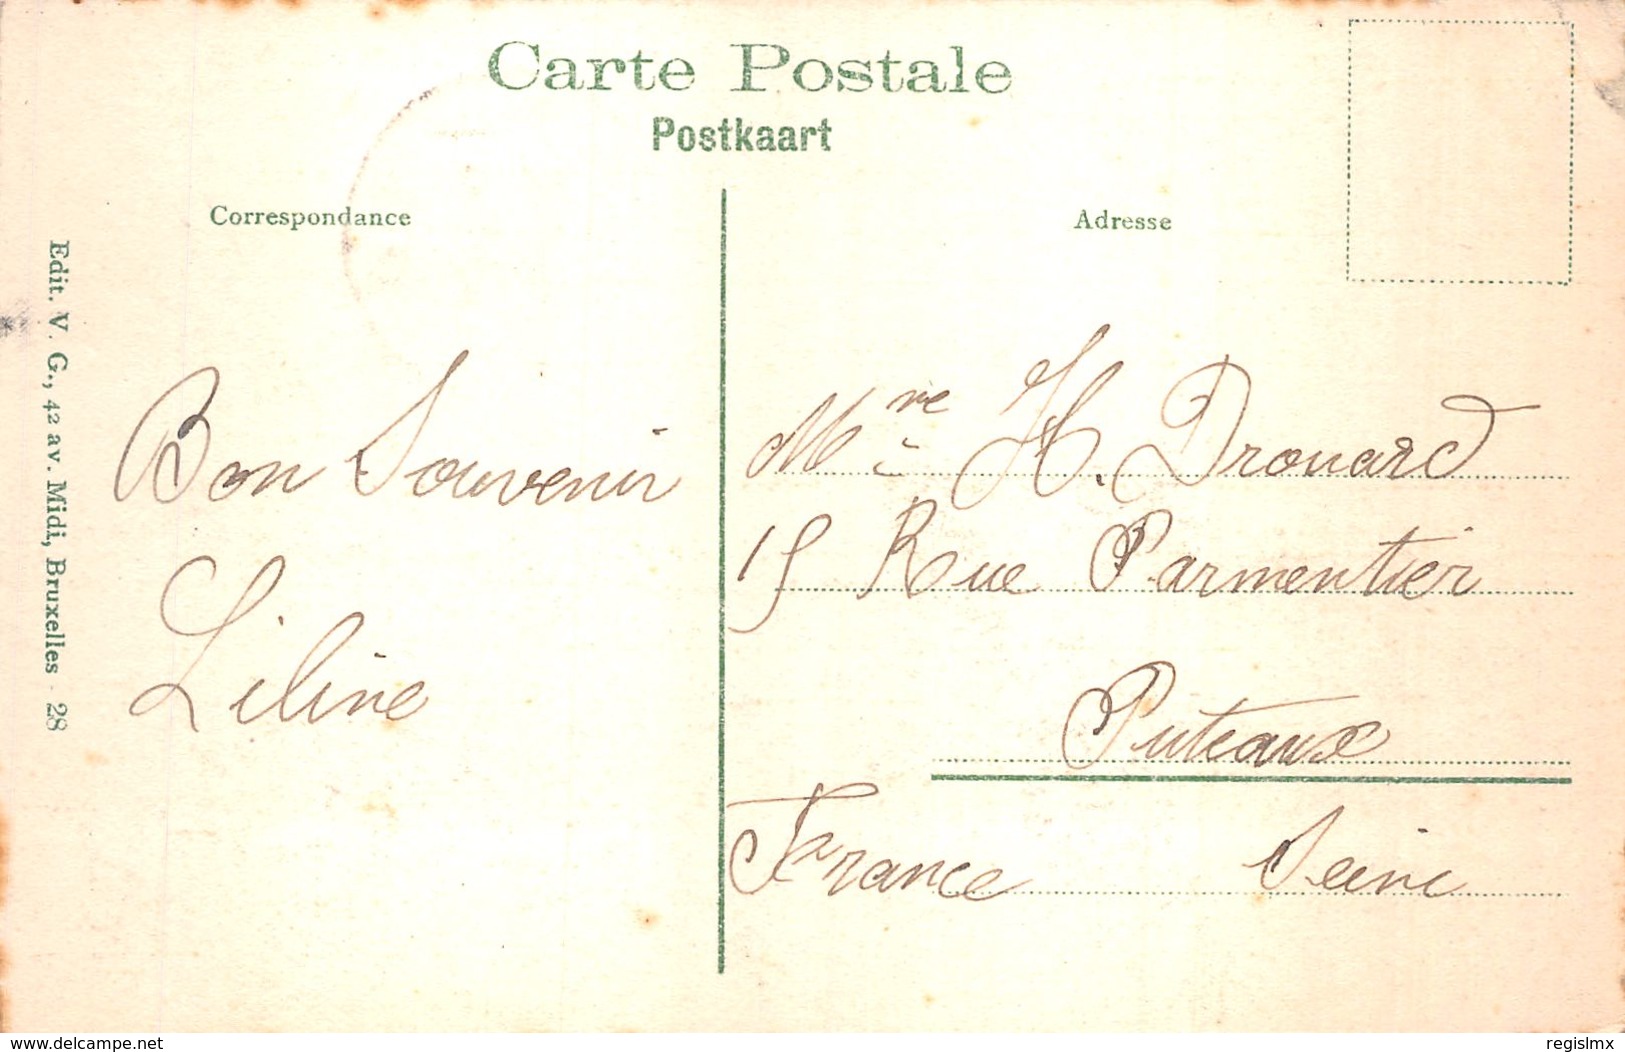 Carte Postale
Postkaart
Correspondance
Adresse
Edit. V. G., 42 av. Midi, Bruxelles - 28
Bon Souvenir
Liline
Mre H. Drouard
15 Rue Parmentier
Puteaux
France Seine
www.delcampe.net
regislmx